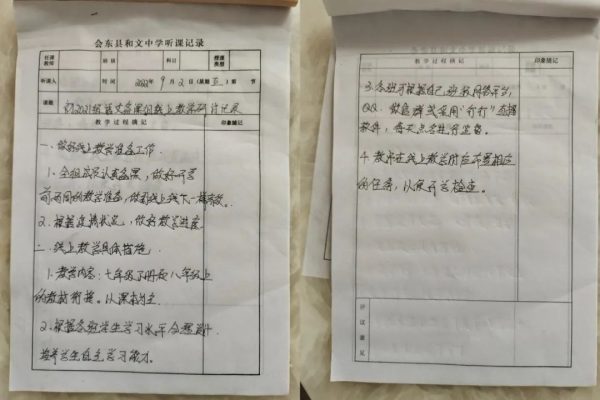 会东县和文中学听课记录
任课教师 班级 科目 授课类型
听课人 时间 2022年9月2日(星期五)第 节
课题 初2021级语文备课组线上教学研讨记录
教学过程摘记 印象随记
一、做好线上教学准备工作.
1、全组成员认真备课,做好开学
前两周的教学准备,做到线上线下一样有效。
2、根据疫情状况,做好教学进度.
二、线上教学具体措施.
1、教学内容:七年级下册及八年级上
的教材衔接。以课本为主.
2、根据各班学生学习水平合理
培养学生自主学习能力。
教学过程摘记 印象随记
3、各班可根据自己班教
QQ 群或采用“钉钉”直播
软件,每天点名进行监督。
4、教师在线上教学时应布置相应
的任务,以便开学检查。
评议意见